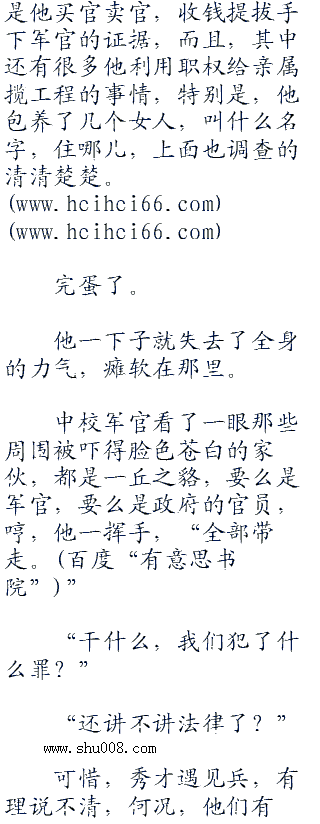 是他买官卖官，收钱提拔手
下军官的证据，而且，其中
还有很多他利用职权给亲属
揽工程的事情，特别是，他
包养了几个女人，叫什么名
字，住哪儿，上面也调查的
清清楚楚。
(www.hcihci66.com)
(www.hcihci66.com)
完蛋了。
他一下子就失去了全身
的力气，瘫软在那里。
中校军官看了一眼那些
周围被吓得脸色苍白的家
伙，都是一丘之貉，要么是
军官，要么是政府的官员，
哼，他一挥手，“全部带
走。(百度“有意思书
院”)”
“干什么，我们犯了什
么罪？”
“还讲不讲法律了？”
www.shu008.com
可惜，秀才遇见兵，有
理说不清，何况，他们有